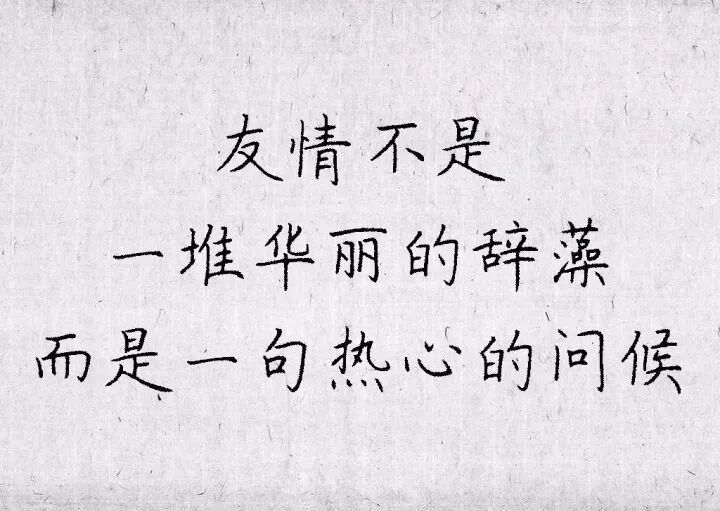 友情不是
一堆华丽的辞藻
而是一句热心的问候